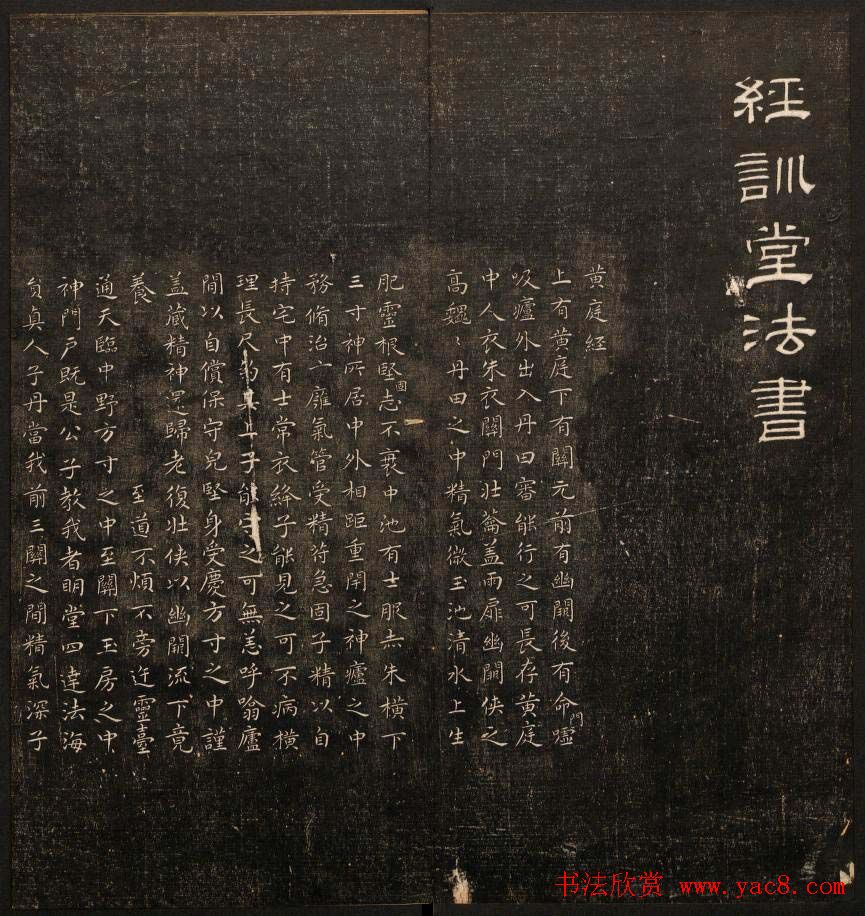 經訓堂法書
黄庭經
上有黄庭下有關元前有幽闕後有命門噓
吸廬外出入丹田審能行之可長存黄庭
中人衣朱衣關門壯籥盖兩扉幽闕侠之
高魏〻丹田之中精氣微玉池清水上生
肥靈根堅固志不衰中池有士服赤朱橫下
三寸神所居中外相距重閇之神廬之中
務脩治玄廱氣管受精符急固子精以自
持宅中有士常衣絳子能見之可不病橫
理長尺約其上子能守之可無恙呼噏廬
間以自償保守皃堅身受慶方寸之中謹
盖藏精神還歸老復壯侠以幽闕流下竟
養　至道不煩不旁迕靈臺
通天臨中野方寸之中至關下玉房之中
神門戶既是公子教我者明堂四達法海
負真人子丹當我前三關之間精氣深子
书法欣赏 www.yac8.com